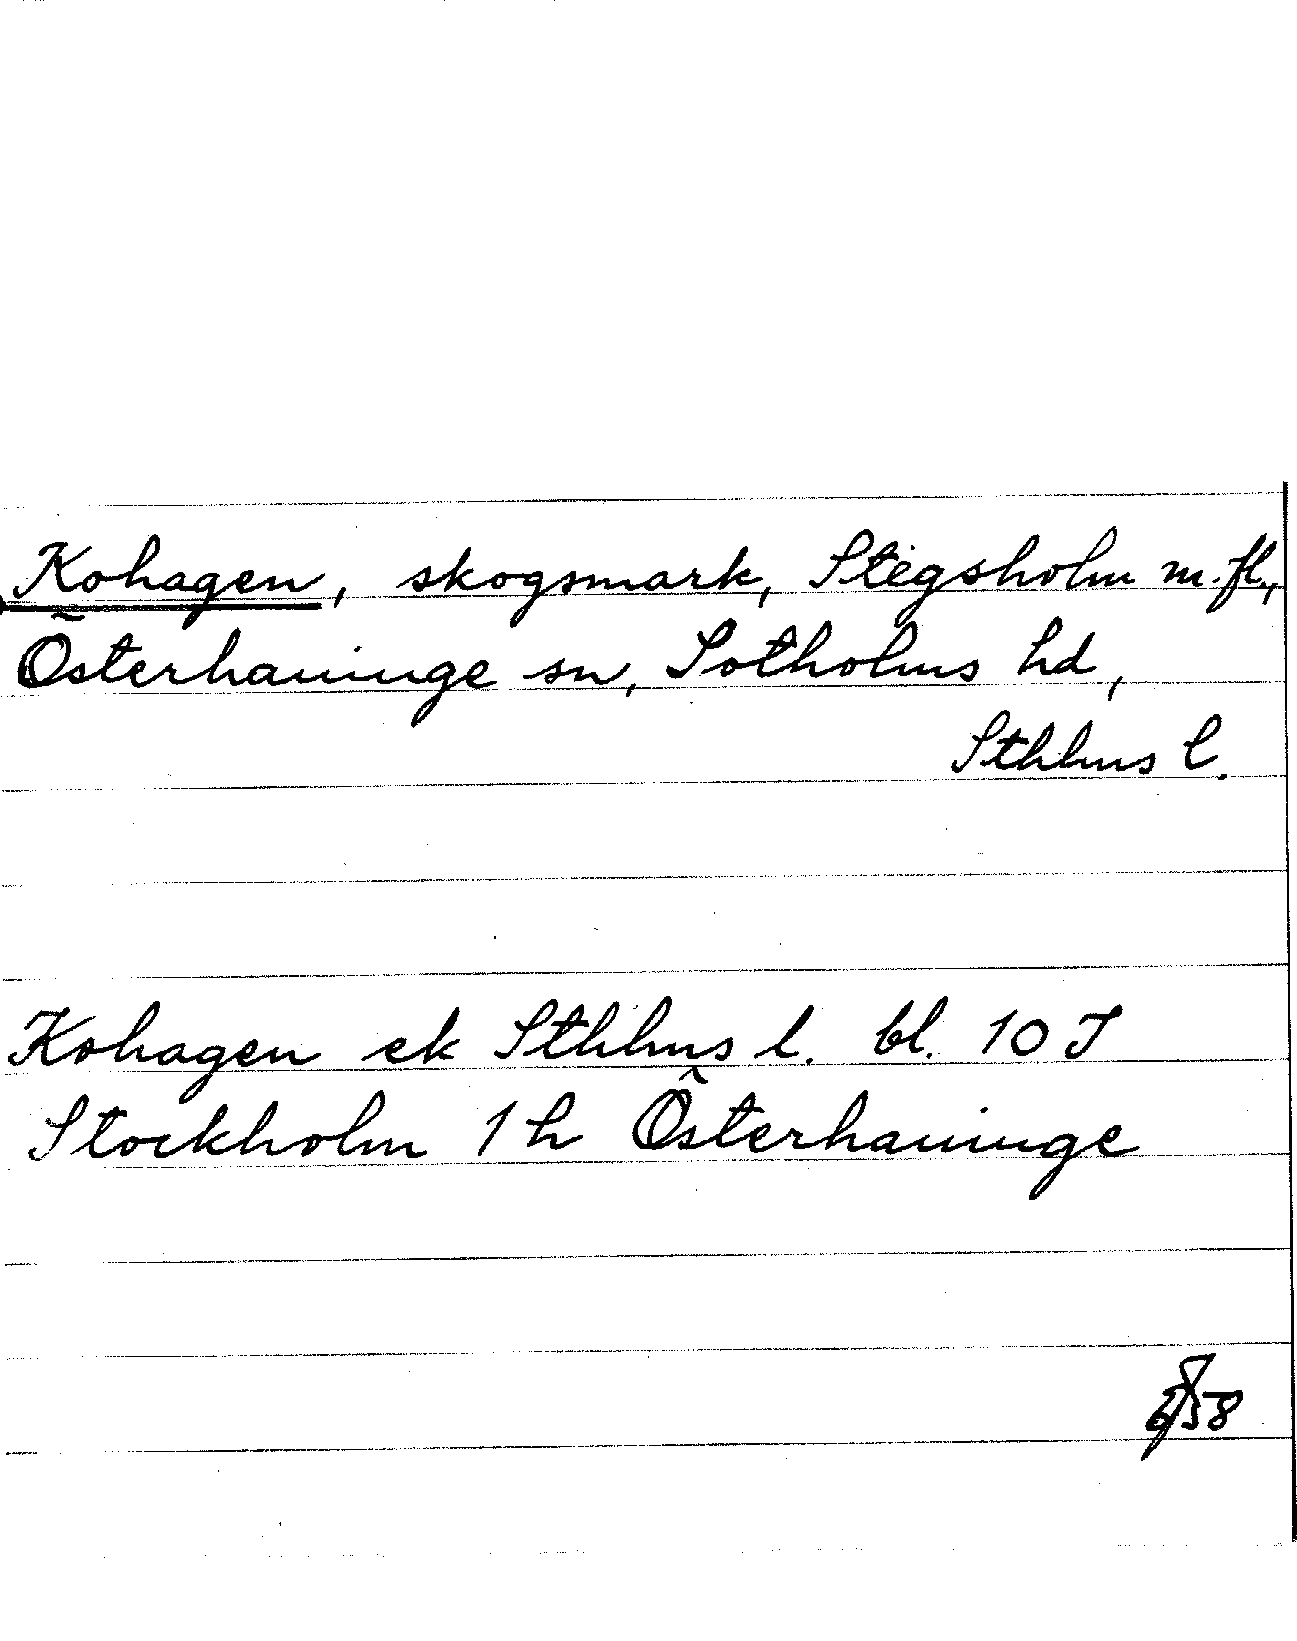 Kohagen, skogsmark, Stegsholm m.fl.,
Österhaninge sn, Sotholms hd,
Sthlms l.
Kohagen ek Sthlms l. bl. 10 J
Stockholm 1 h Österhaninge
58